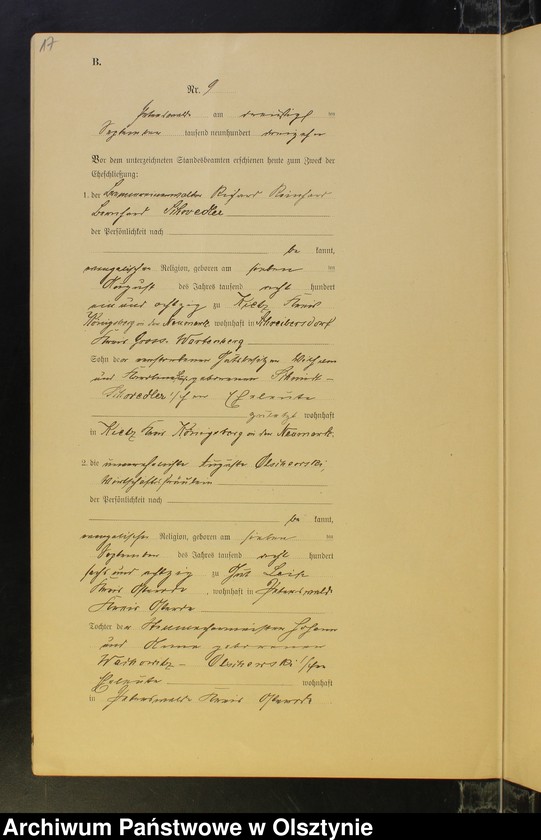 17
B.
Nr. 9
Peterswalde am dreißigsten ten
September tausend neunhundert dreizehn
Vor dem unterzeichneten Standesbeamten erschienen heute zum Zweck der
Eheschließung:
1. der Richard Reinhard
Bernhard Schoedler
der Persönlichkeit nach
be kannt,
evangelischer Religion, geboren am sieben ten
August des Jahres tausend acht hundert
ein und achtzig zu Kietz Kreis
Königsberg in der Neumark, wohnhaft in Schreibersdorf
Kreis Gross-Wartenberg
Sohn der verstorbenen Gutsbesitzer Wilhelm
und geborenen
Schoedler'schen Eheleute
zuletzt wohnhaft
in Kietz Kreis Königsberg in der Neumark.
2. die unverehelichte Auguste Olsikowski,
Wirtschaftsfräulein
der Persönlichkeit nach
be kannt,
evangelischer Religion, geboren am sieben ten
September des Jahres tausend acht hundert
sechs und achtzig zu Gut
Kreis Osterode, wohnhaft in Peterswalde
Kreis Osterode
Tochter der Stellmachermeister Johann
und Anna geborenen
Olsikowski'schen
Eheleute wohnhaft
in Peterswalde Kreis Osterode
Archiwum Państwowe w Olsztynie